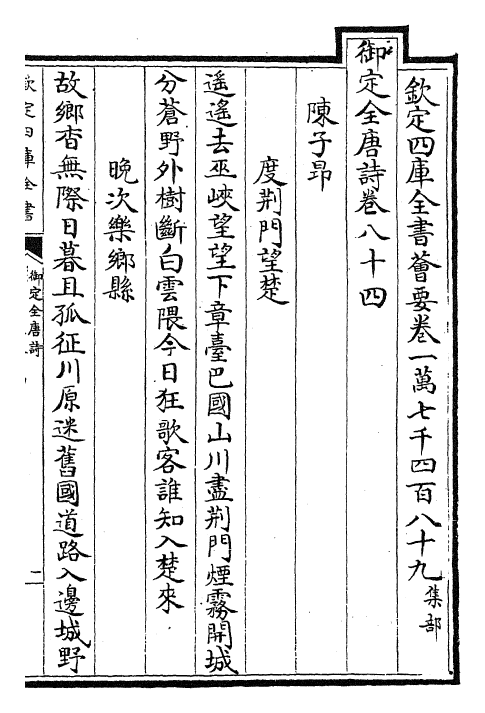 欽定四庫全書薈要卷一萬七千四百八十九集部
御定全唐詩卷八十四
陳子昂
度荆門望楚
遥遥去巫峽望望下章臺巴國山川盡荆門煙霧開城
分蒼野外樹斷白雲隈今日狂歌客誰知入楚來
晚次樂鄉縣
故鄉杳無際日暮且孤征川原迷舊國道路入邊城野
欽定四庫全書
御定全唐詩
二